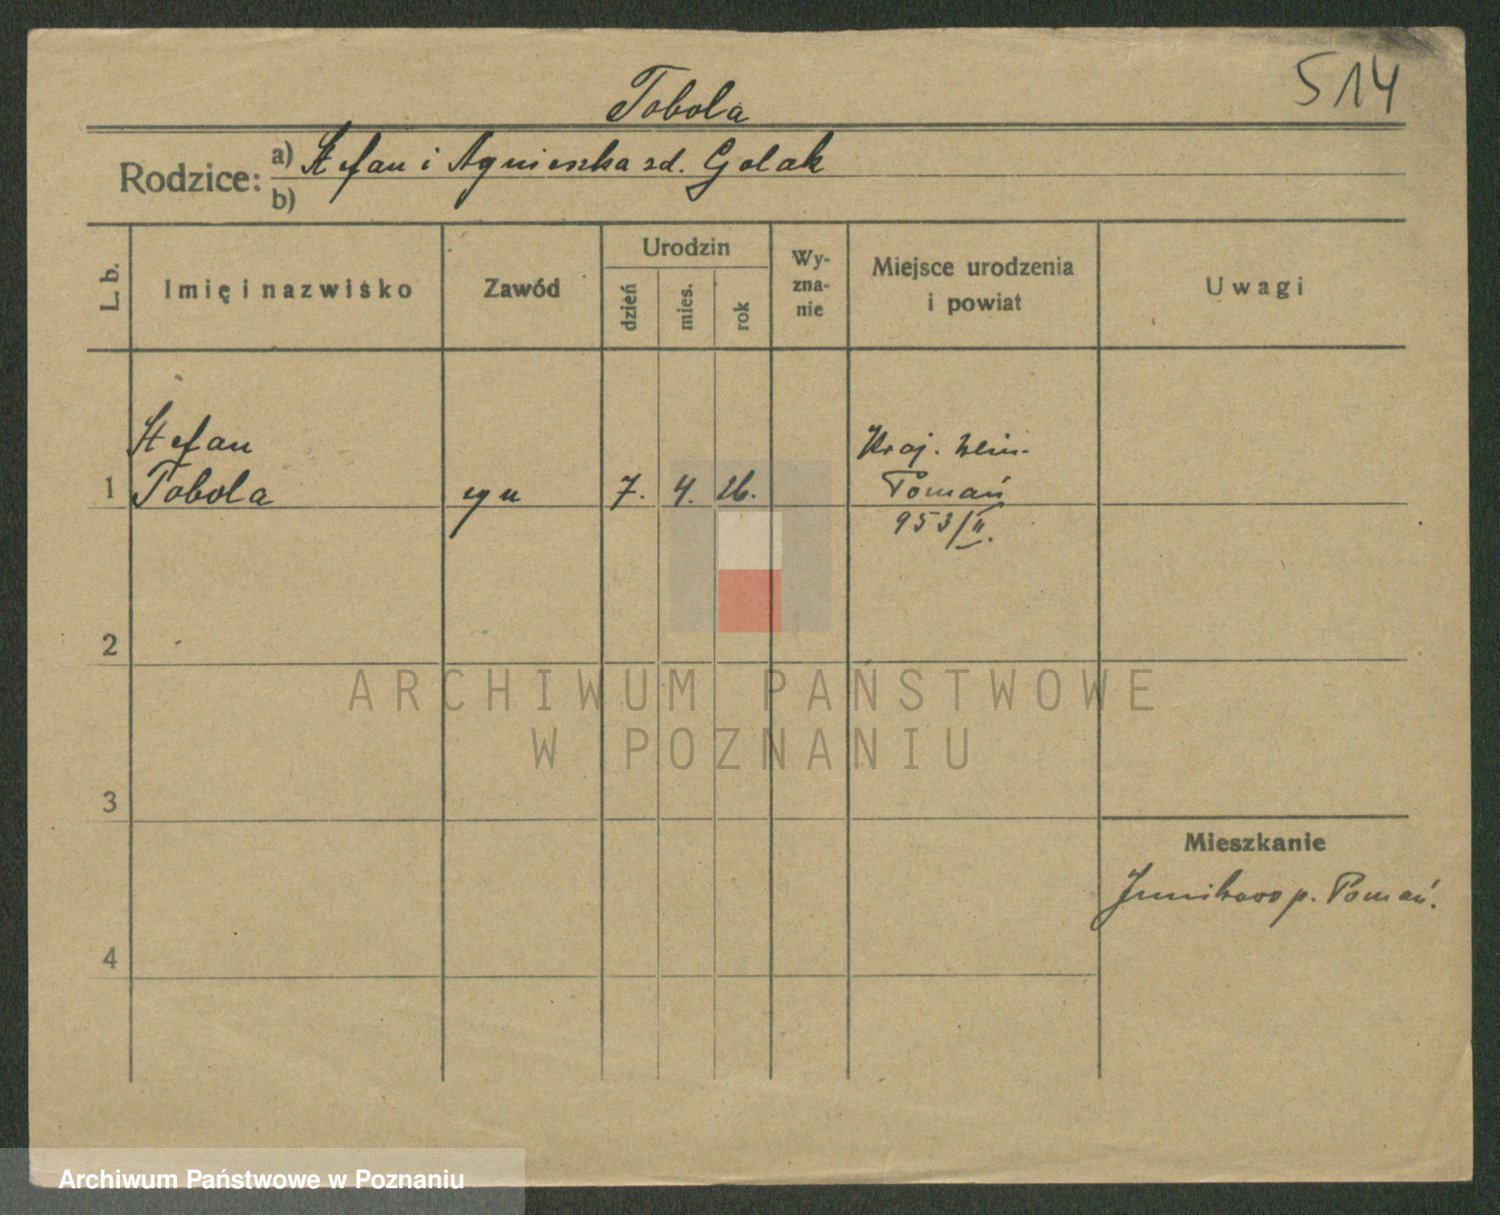 514
Tobola
Rodzice: a) Stefan i Agnieszka zd. Golak
b)
L. b.
Imię i nazwisko
Zawód
Urodzin
dzień
mies.
rok
Wy-
zna-
nie
Miejsce urodzenia
i powiat
Uwagi
Stefan
1 Tobola
syn 7. 4. 26.
Poznań
953/II.
2
3
4
Mieszkanie
Junikowo p. Poznań.
ARCHIWUM PAŃSTWOWE
W POZNANIU
Archiwum Państwowe w Poznaniu